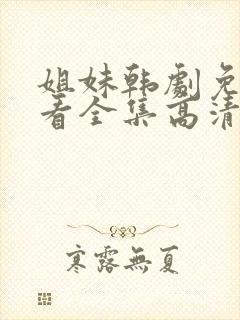 姐妹韩劇免
看全集高清
寒露無夏